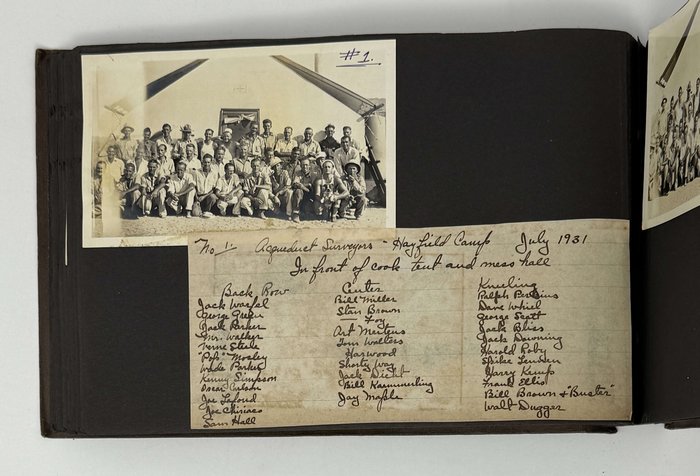 #1.
No 1. Aqueduct Surveyors - Hayfield Camp July 1931
In front of cook tent and mess hall
Back Row
Jack
George Green
Jack Parker
Mr. Walker
Verne Steele
"Pop" Mosley
Wade Parker
Kenny Simpson
Oscar
Joe Lafond
Joe Chiriaco
Sam Hall
Center
Bill Miller
Stan Brown
— Foy
Art Mertens
Tom Walters
Harwood
Shorty Way
Jack Dicht
Bill Kammerling
Jay
Kneeling
Ralph Perkins
Dave
George Scatt
Jack Blies
Jack Downing
Harold Roby
Spike
Harry Kemp
Frank Ellis
Bill Brown & "Buster"
Walt Dugger